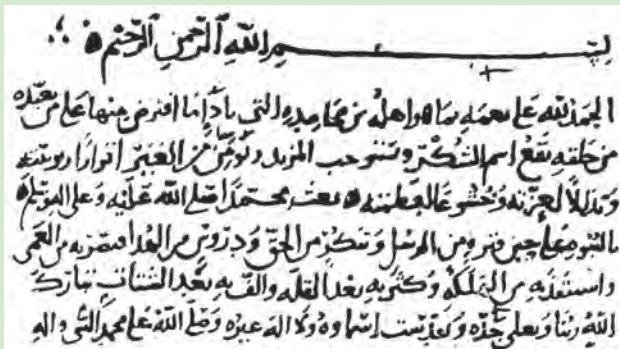 بسم الله الرحمن الرحيم
الحمد لله على نعمه بما هو اهله من محامده التي باداء ما افترض منها على من تعبده
من خلقه يقع اسم الشكر وتستوجب المزيد وتؤمن من الغير اقرارا بربوبيته
وتذللا لعزته وخشوعا لعظمته بعث محمدا صلى الله عليه وعلى اله وسلم
بالنبوة على حين فترة من الرسل وتنكر من الحق ودروس من الهدا فبصر به من العمى
واستنقذ به من الهلكة وكثر به بعد القلة والف به بعد الشتات تبارك
الله ربنا وتعلى جده وتقدست اسماوه ولا اله غيره وصلى الله على محمد النبي واله